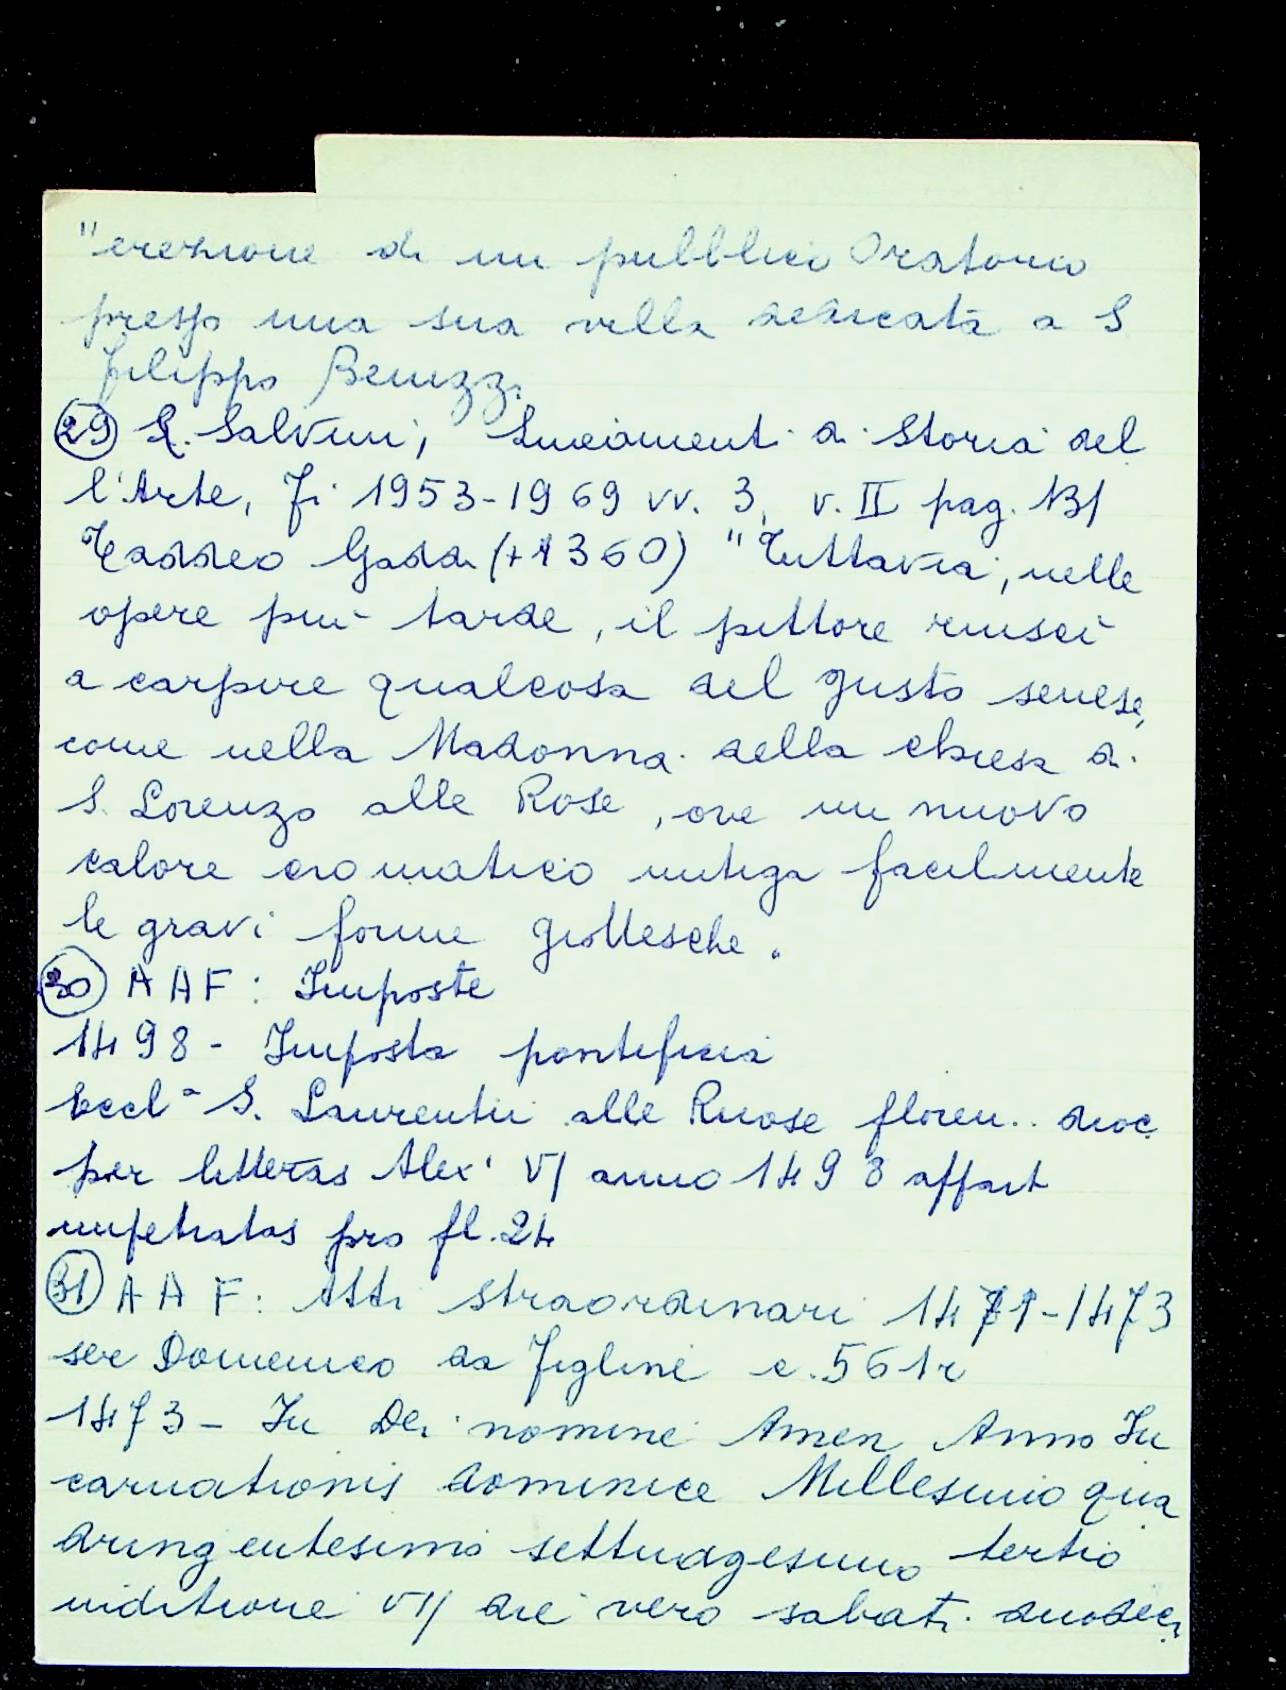 "erezione di un pubblico Oratorio
presso una sua villa dedicata a S
Filippo Benizzi.
(29) R. Salvini, Lineamenti di Storia del
l'Arte, Fi 1953-1969 vv. 3, v. II pag. 131
Taddeo Gaddi (+1360) "Tuttavia, nelle
opere più tarde, il pittore riuscì
a carpire qualcosa del gusto senese,
come nella Madonna della chiesa di
S. Lorenzo alle Rose, ove un nuovo
calore cromatico mitiga facilmente
le gravi forme giottesche.
(30) AAF: Imposte
1498 - Imposta pontificia
Eccl.a S. Laurentii alle Ruose floren.. dioc
per litteras Alex' VI anno 1498
impetratas pro fl. 24
(31) AAF: Atti straordinari 1471-1473
ser Domenico da Figline c. 561r
1473 - In Dei nomine Amen Anno In
carnationis dominice Millesimo qua
dringentesimo settuagesimo tertio
inditione VI die vero sabati duodeci